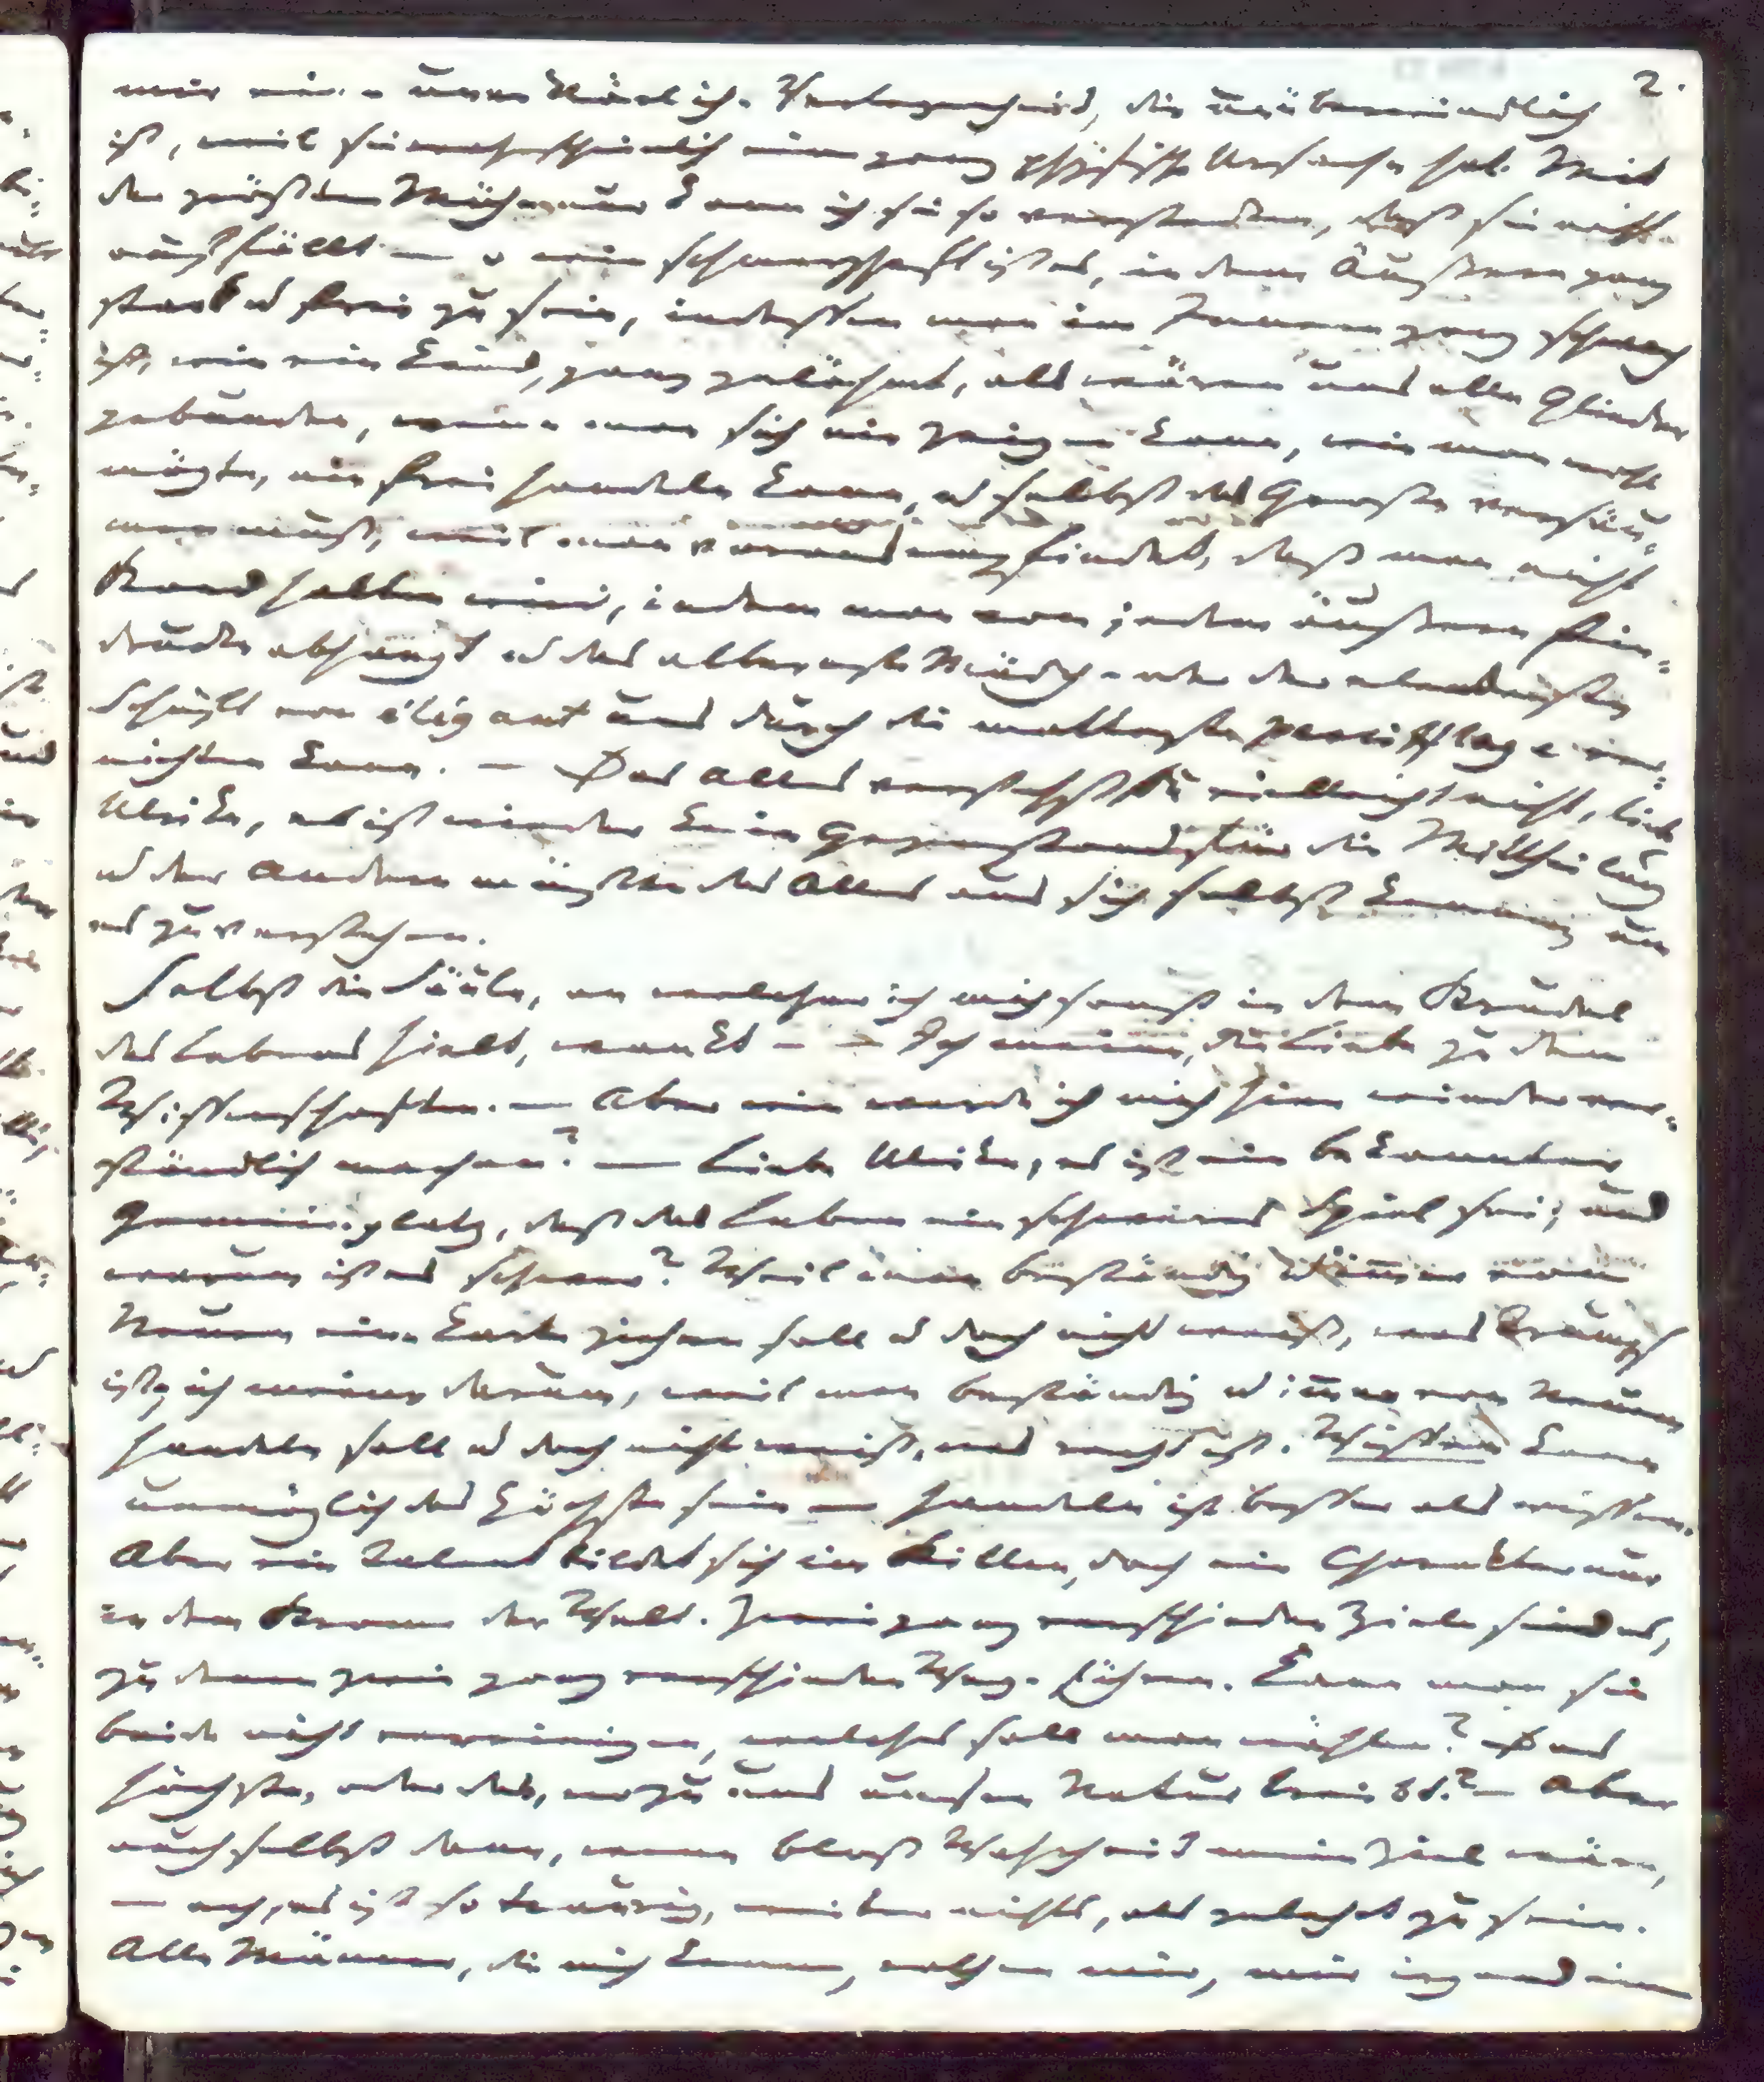 mir eine unerklärliche Verlegenheit, die unüberwindlich 2.
ist, weil sie wahrscheinlich eine ganz phÿsische Ursache hat. Mit
der größten Mühe nur kann ich sie so verstecken, daß sie nicht
auffällt — o wie schmerzhaft ist es, in dem Äußern ganz
stark u frei zu sein, indessen man im Innern ganz schwach
ist, wie ein Kind, ganz gelähmt, als wären uns alle Glieder
gebunden, wenn man sich nie zeigen kann, wie man wohl
mögte, nie frei handeln kann, u selbst das Große versäu=
men muß, weil man vorausempfindet, daß man nicht
Stand halten wird, indem man von jedem äußern Ein=
drucke abhangt u das albernste Mädchen oder der elendeste
Schuft von elégant uns durch die matteste persifflage ver=
nichten kann. — Das Alles verstehst Du vielleicht nicht, liebe
Ulrike, es ist wieder kein Gegenstand für die Mittheilung
u der Andere müßte das Alles aus sich selbst kennen, um
es zu verstehen.
Selbst die Säule, an welcher ich mich sonst in dem Strudel
des Lebens hielt, wankt — — Ich meine, die Liebe zu den
Wissenschaften. — Aber wie werde ich mich hier wieder ver=
ständlich machen? — Liebe Ulrike, es ist ein bekannter
Gemeinplatz, daß das Leben ein schweres Spiel sei; und
warum ist es schwer? Weil man beständig u im̄er von
Neuem eine Karte ziehen soll u doch nicht weiß, was Trumpf
ist; ich meine darum, weil man beständig u im̄er von Neuem
handeln soll u doch nicht weiß, was recht ist. Wissen kann
unmöglich das Höchste sein — handeln ist besser als wissen.
Aber ein Talent bildet sich im Stillen, doch ein Charakter nur
in dem Strome der Welt. Zwei ganz verschiedne Ziele sind es,
zu denen zwei ganz verschiedne Wege führen. Kann man sie
beide nicht vereinigen, welches soll man wählen? Das
höchste, oder das, wozu uns unsre Natur treibt? — Aber
auch selbst dann, wenn bloß Wahrheit mein Ziel wäre,
— ach, es ist so traurig, weiter nichts, als gelehrt zu sein.
Alle Männer, die mich kennen, rathen mir, mir irgend einen